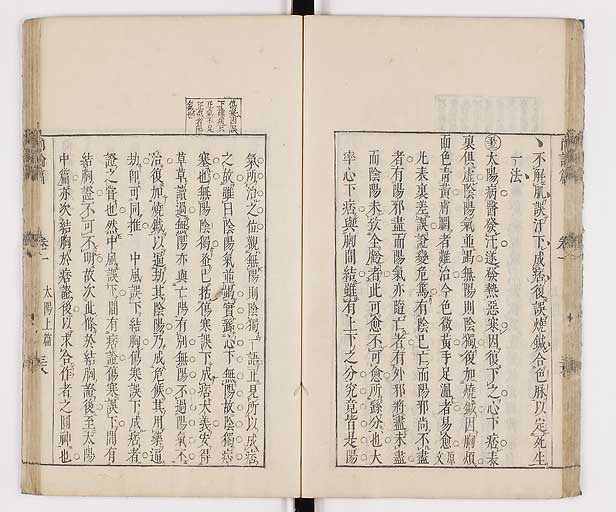 不解肌誤汗下成痞後誤燒鍼合色脈以定死生
一法
太陽病醫發汗遂發熱惡寒因復下之心下痞表
裏俱虛陰陽氣並竭無陽則陰獨復加燒鍼因胸煩
面色青黃膚瞤者難治今色微黃手足溫者易愈原文
凡表裏差誤證變危篤有陰已亡而陽邪尚不盡
者有陽邪盡而陽氣亦隨亡者有外邪將盡未盡
而陰陽未致全虧者此可愈不可愈所繇分也大
率心下痞與胸間結雖有上下之分究竟皆是陽
氣所治之位觀無陽則陰獨一語正見所以成痞
之故雖曰陰陽氣並竭實繇心下無陽故陰獨痞
塞也無陽陰獨早已括傷寒誤下成痞大義安得
草草讀過無陽亦與亡陽有別無陽不過陽氣不
治復加燒鍼以逼劫其陰陽乃成危候其用藥逼
劫即可同推 中風誤下結胸傷寒誤下成痞者
證之常也然中風誤下間有痞證傷寒誤下間有
結胸證不可不明故次此條於結胸證後至太陽
中篇亦次結胸於痞證後以求合作者之圓神也
卷一 太陽上篇